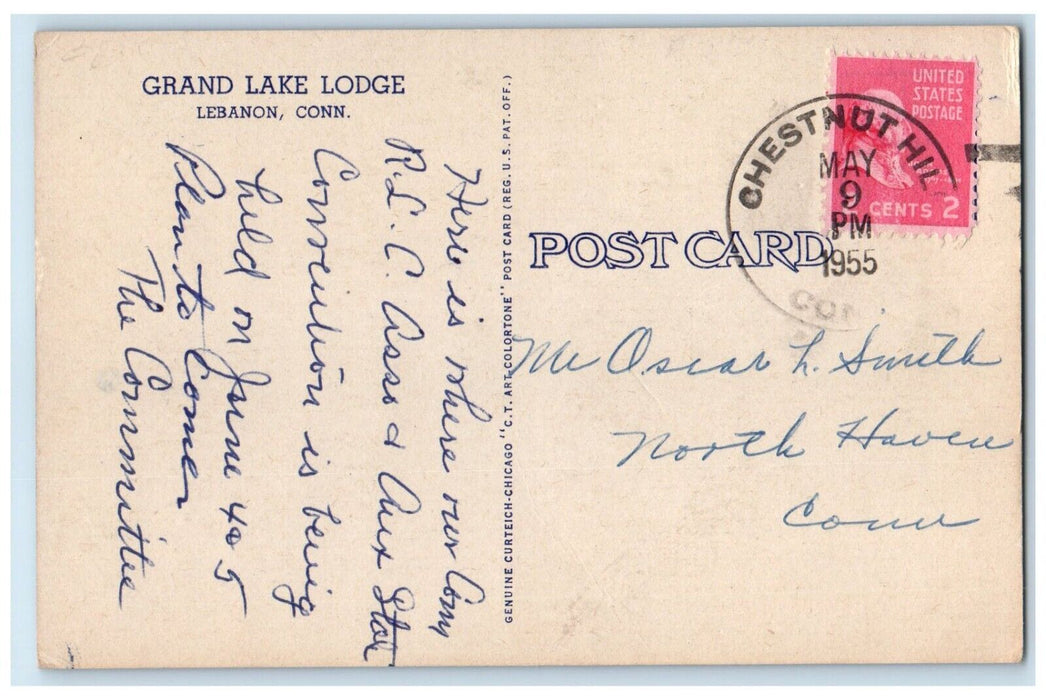 GRAND LAKE LODGE
LEBANON, CONN.
Here is where our Com
R.L.C. Assn & Aux State
Convention is being
held on June 4 o 5
Plan to Come
The Committee
GENUINE CURTEICH-CHICAGO "C.T. ART-COLORTONE" POST CARD (REG. U.S. PAT. OFF.)
POST CARD
UNITED
STATES
POSTAGE
CENTS 2
CHESTNUT HIL
MAY
9
PM
1955
CON
Mr Oscar L. Smith
North Haven
Conn